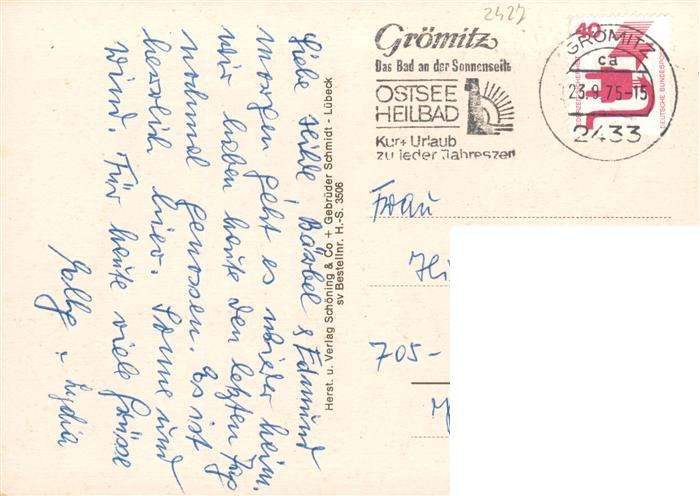 2427
Grömitz
Das Bad an der Sonnenseite
OSTSEE
HEILBAD
Kur+ Urlaub
zu jeder Jahreszeit
40
DEUTSCHE BUNDESPOST
GRÖMITZ
ca
23.9.75-15
2433
Liebe Bärbel & Edmund
morgen geht es wieder heim.
wir haben heute den letzten Tag
nochmal genossen. Es ist
herrlich hier. Sonne und
Wind. Für heute viele Grüsse
Lydia
Herst. u. Verlag Schöning & Co + Gebrüder Schmidt - Lübeck
sv Bestellnr. H.-S. 3506
Frau
705-